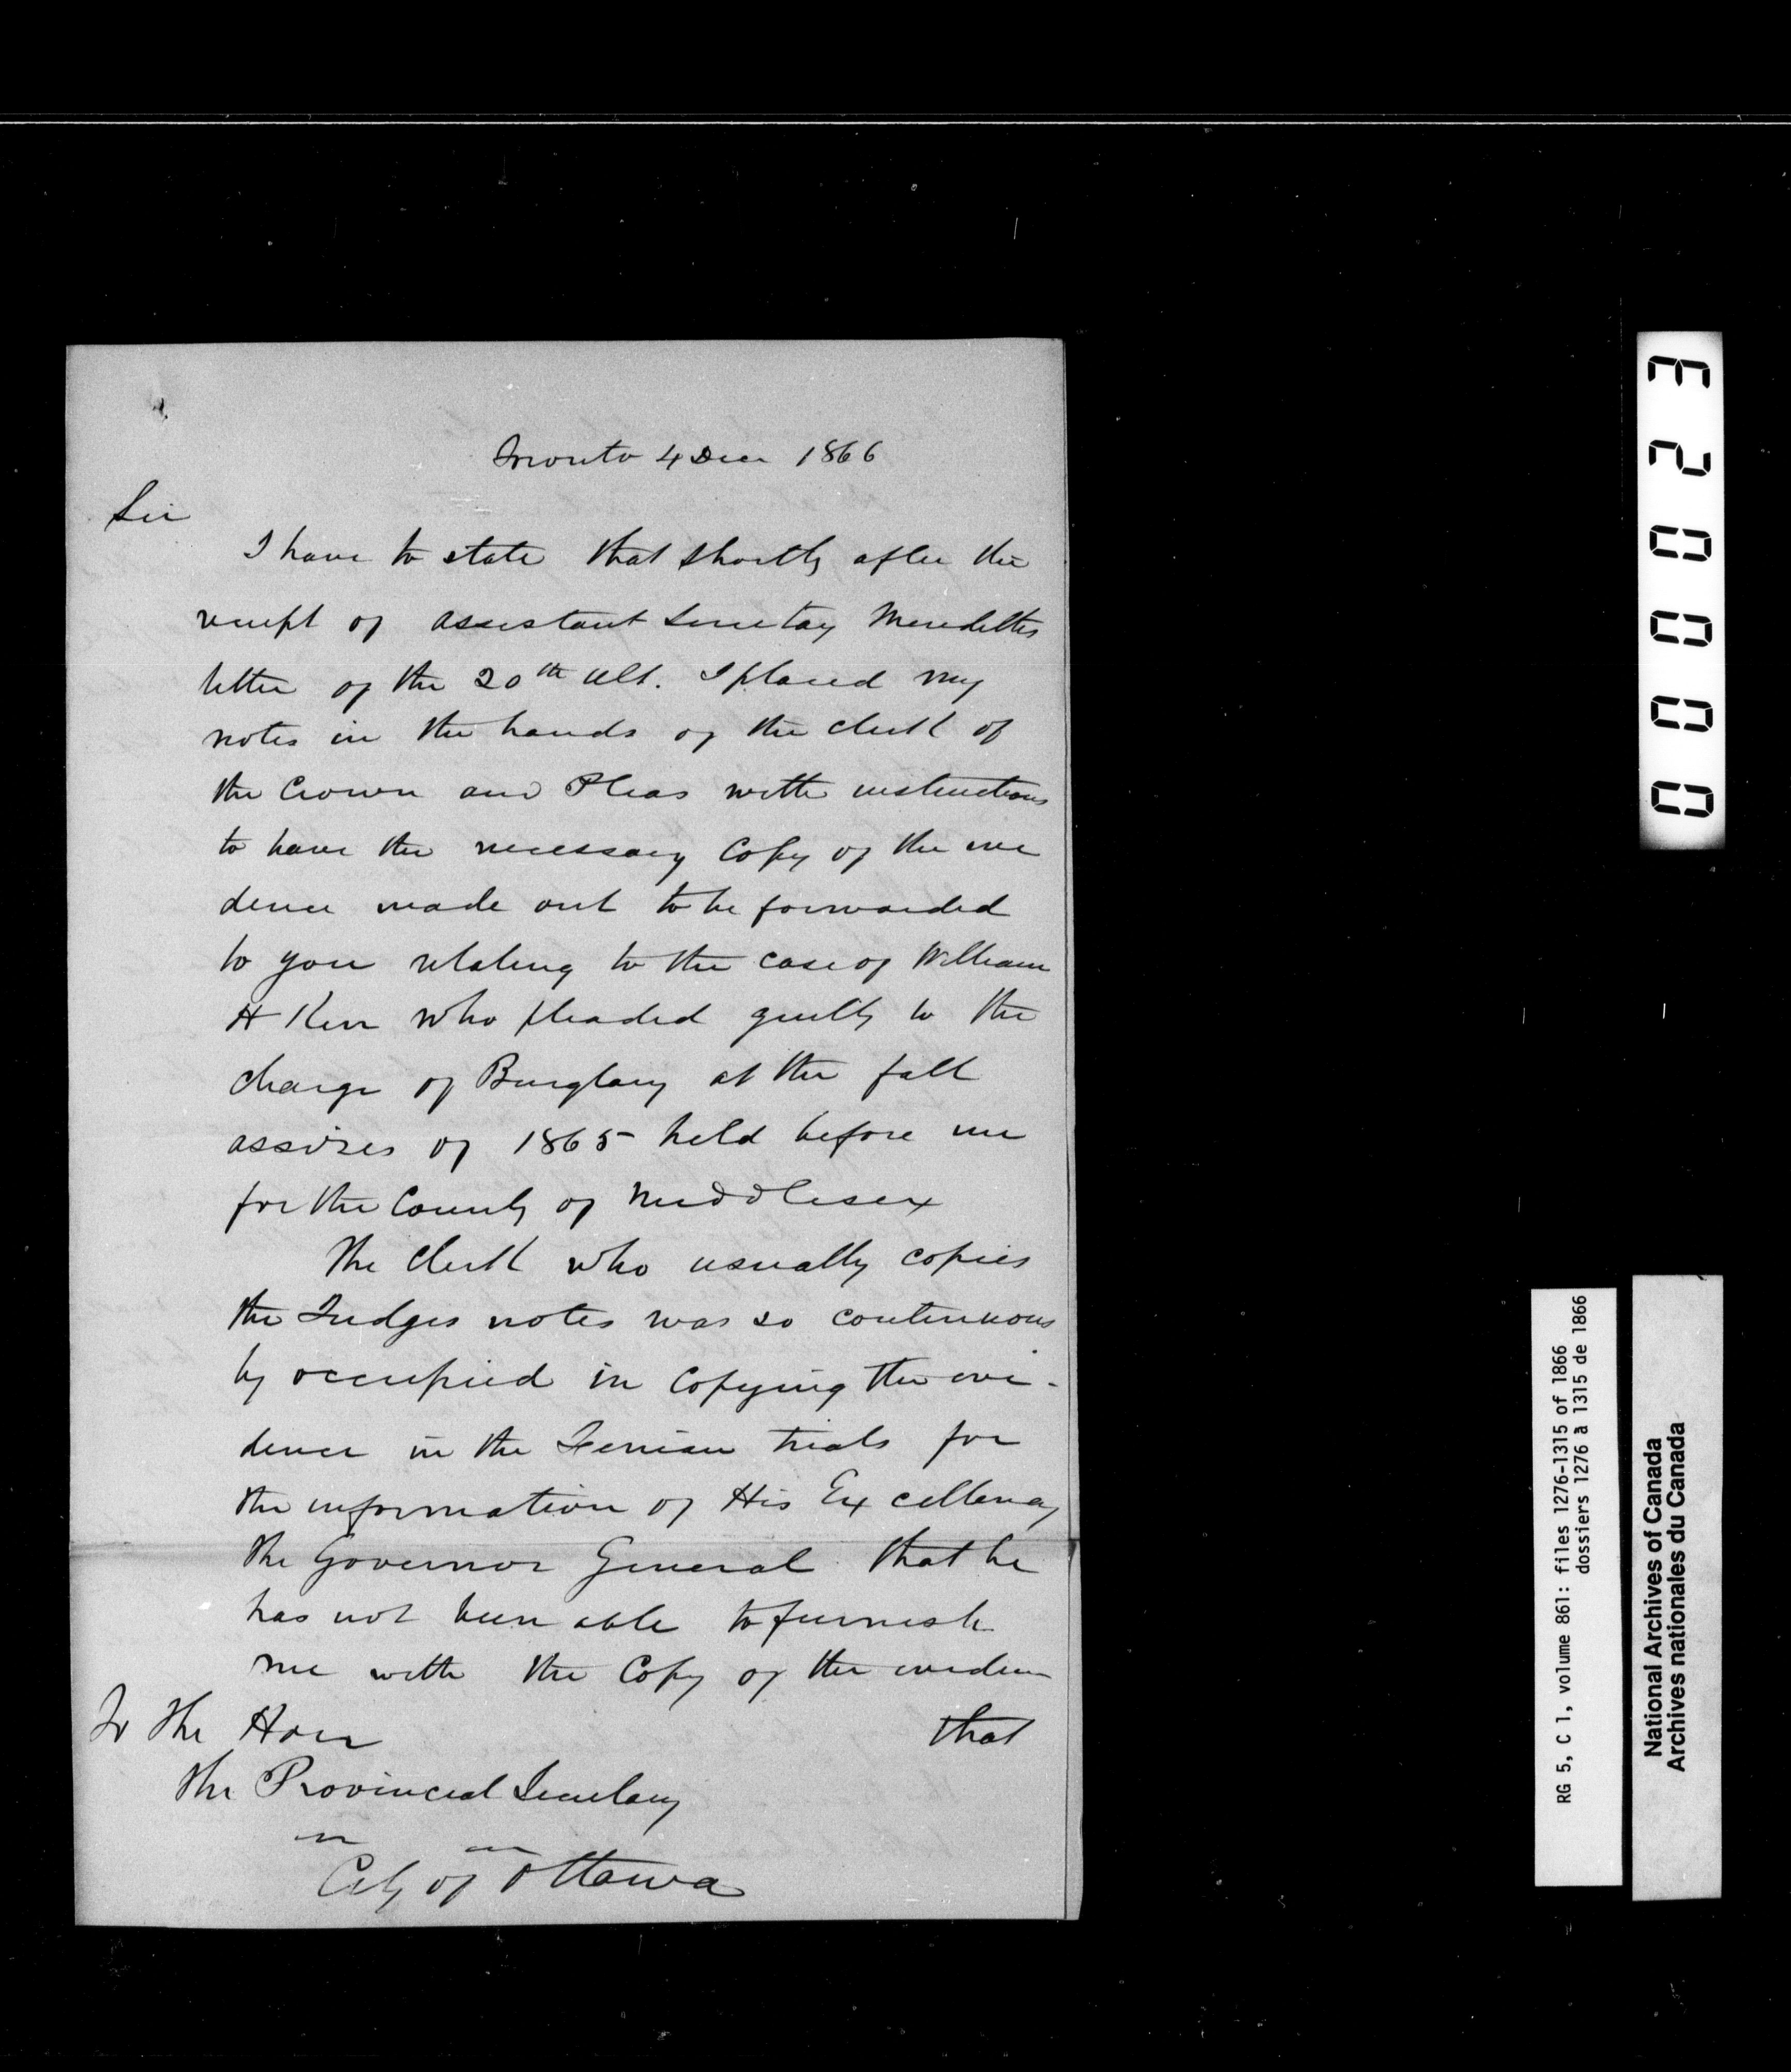 Toronto 4 Decr 1866
Sir
I have to state that shortly after the
receipt of assistant Secretary Merediths
letter of the 20th Ult. I placed my
notes in the hands of the Clerk of
the Crown and Pleas with instructions
to have the necessary Copy of the evi
dence made out to be forwarded
to you relating to the case of William
H Kerr who pleaded guilty to the
charge of Burglary at the fall
assizes of 1865 held before me
for the County of Middlesex
The Clerk who usually copies
the Judges notes was so continuous
ly occupied in Copying the evi-
dence in the Fenian trials for
the information of His Excellency
the Governor General that he
has not been able to furnish
me with the Copy of the evidence
that
To the Hon
the Provincial Secretary
City of Ottawa
00002E
RG 5, C 1, volume 861: files 1276-1315 of 1866
dossiers 1276 à 1315 de 1866
National Archives of Canada
Archives nationales du Canada